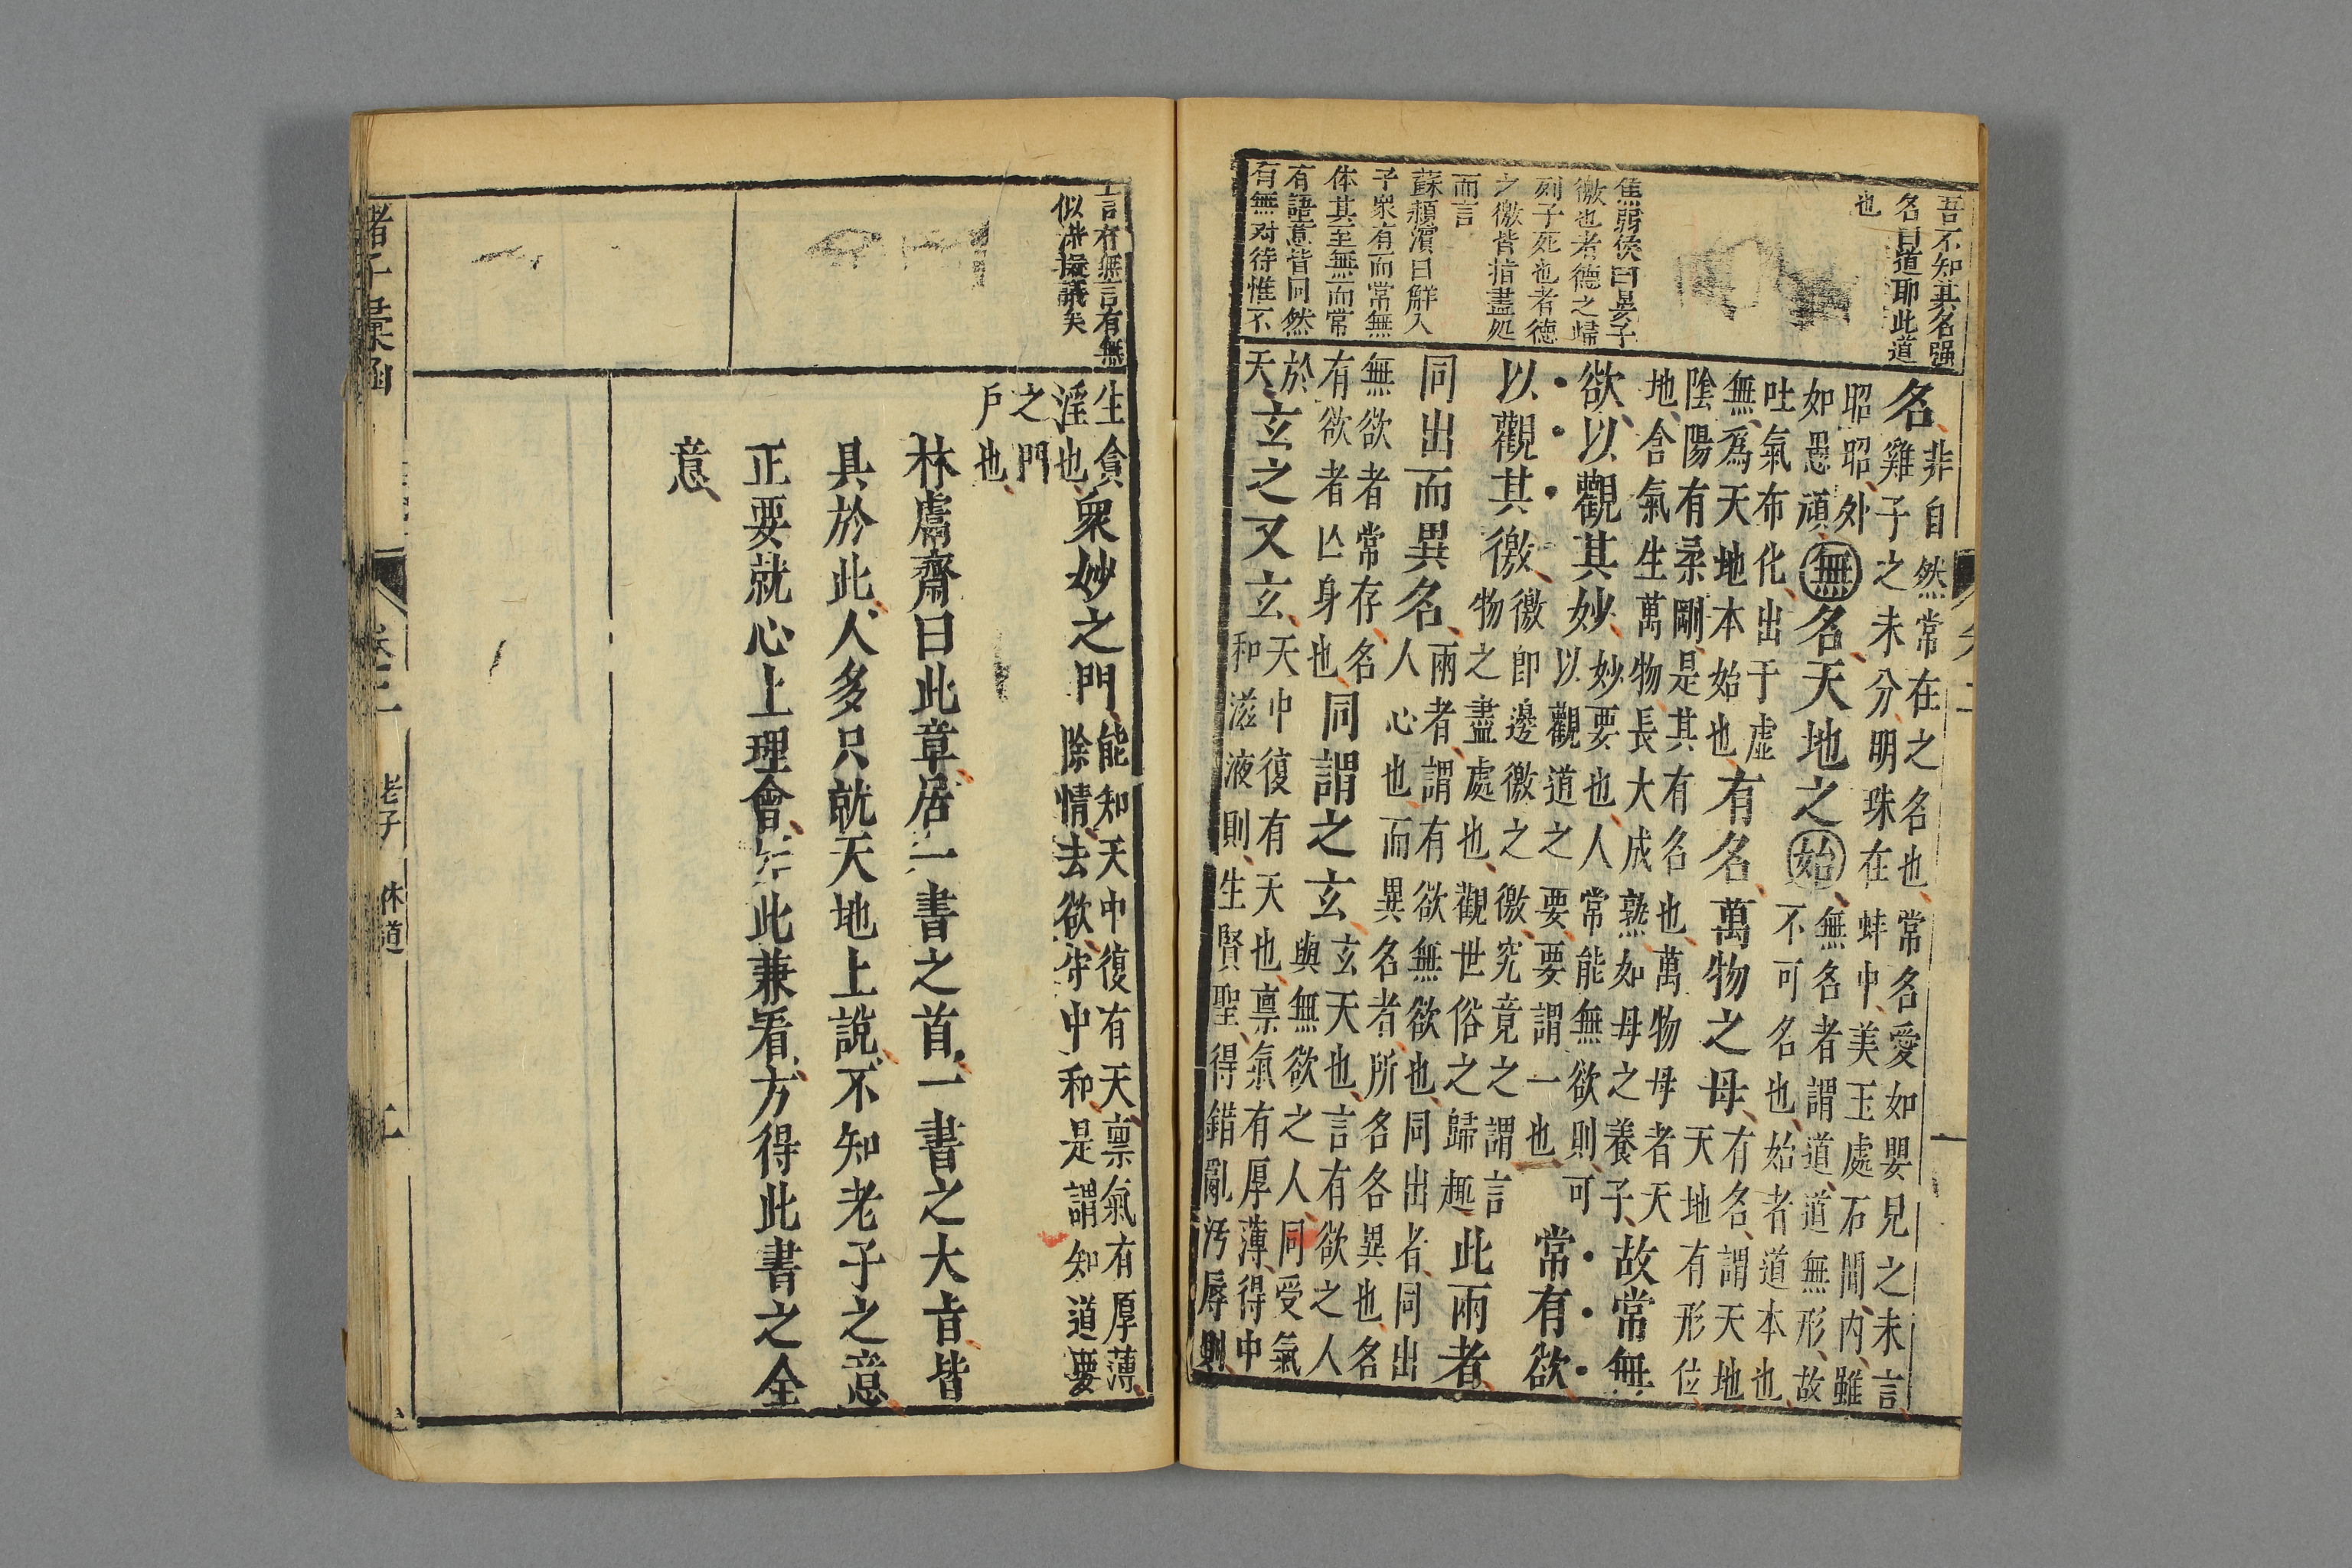 吾不知其名强
名曰道耶此道
也
焦弱侯曰晏子
徼也者德之歸
列子死也者德
之徼皆指盡処
而言
蘇頴濱曰觧入
子衆有而常無
体其至無而常
有語意皆同然
有無对待惟不
名非自然常在之名也常名愛如嬰兒之未言雞子之未分明珠在蚌中美玉處石間内雖
昭昭外如愚頑無名天地之始無名者謂道道無形故不可名也始者道本也
吐氣布化出于虛無為天地本始也有名萬物之母有名謂天地天地有形位
陰陽有柔剛是其有名也萬物母者天地含氣生萬物長大成熟如母之養子故常無
欲以觀其妙妙要也人常能無欲則可以觀道之要要謂一也常有欲
以觀其徼徼即邊徼之徼究竟之謂言物之盡處也觀世俗之歸趣此兩者
同出而異名兩者謂有欲無欲也同出者同出人心也而異名者所名各異也名
無欲者常存名有欲者亾身也同謂之玄玄天也言有欲之人與無欲之人同受氣
於天玄之又玄天中復有天也稟氣有厚薄得中和滋液則生賢聖得錯亂汚辱則
言有無言有無
似涉擬議矣
生貪淫也衆妙之門能知天中復有天稟氣有厚薄除情去欲守中和是謂知道要
之門戶也
林鬳齋曰此章居一書之首一書之大旨皆
具於此人多只就天地上說不知老子之意
正要就心上理會如此兼看方得此書之全
意
諸子彙函
卷二
老子
体道
二